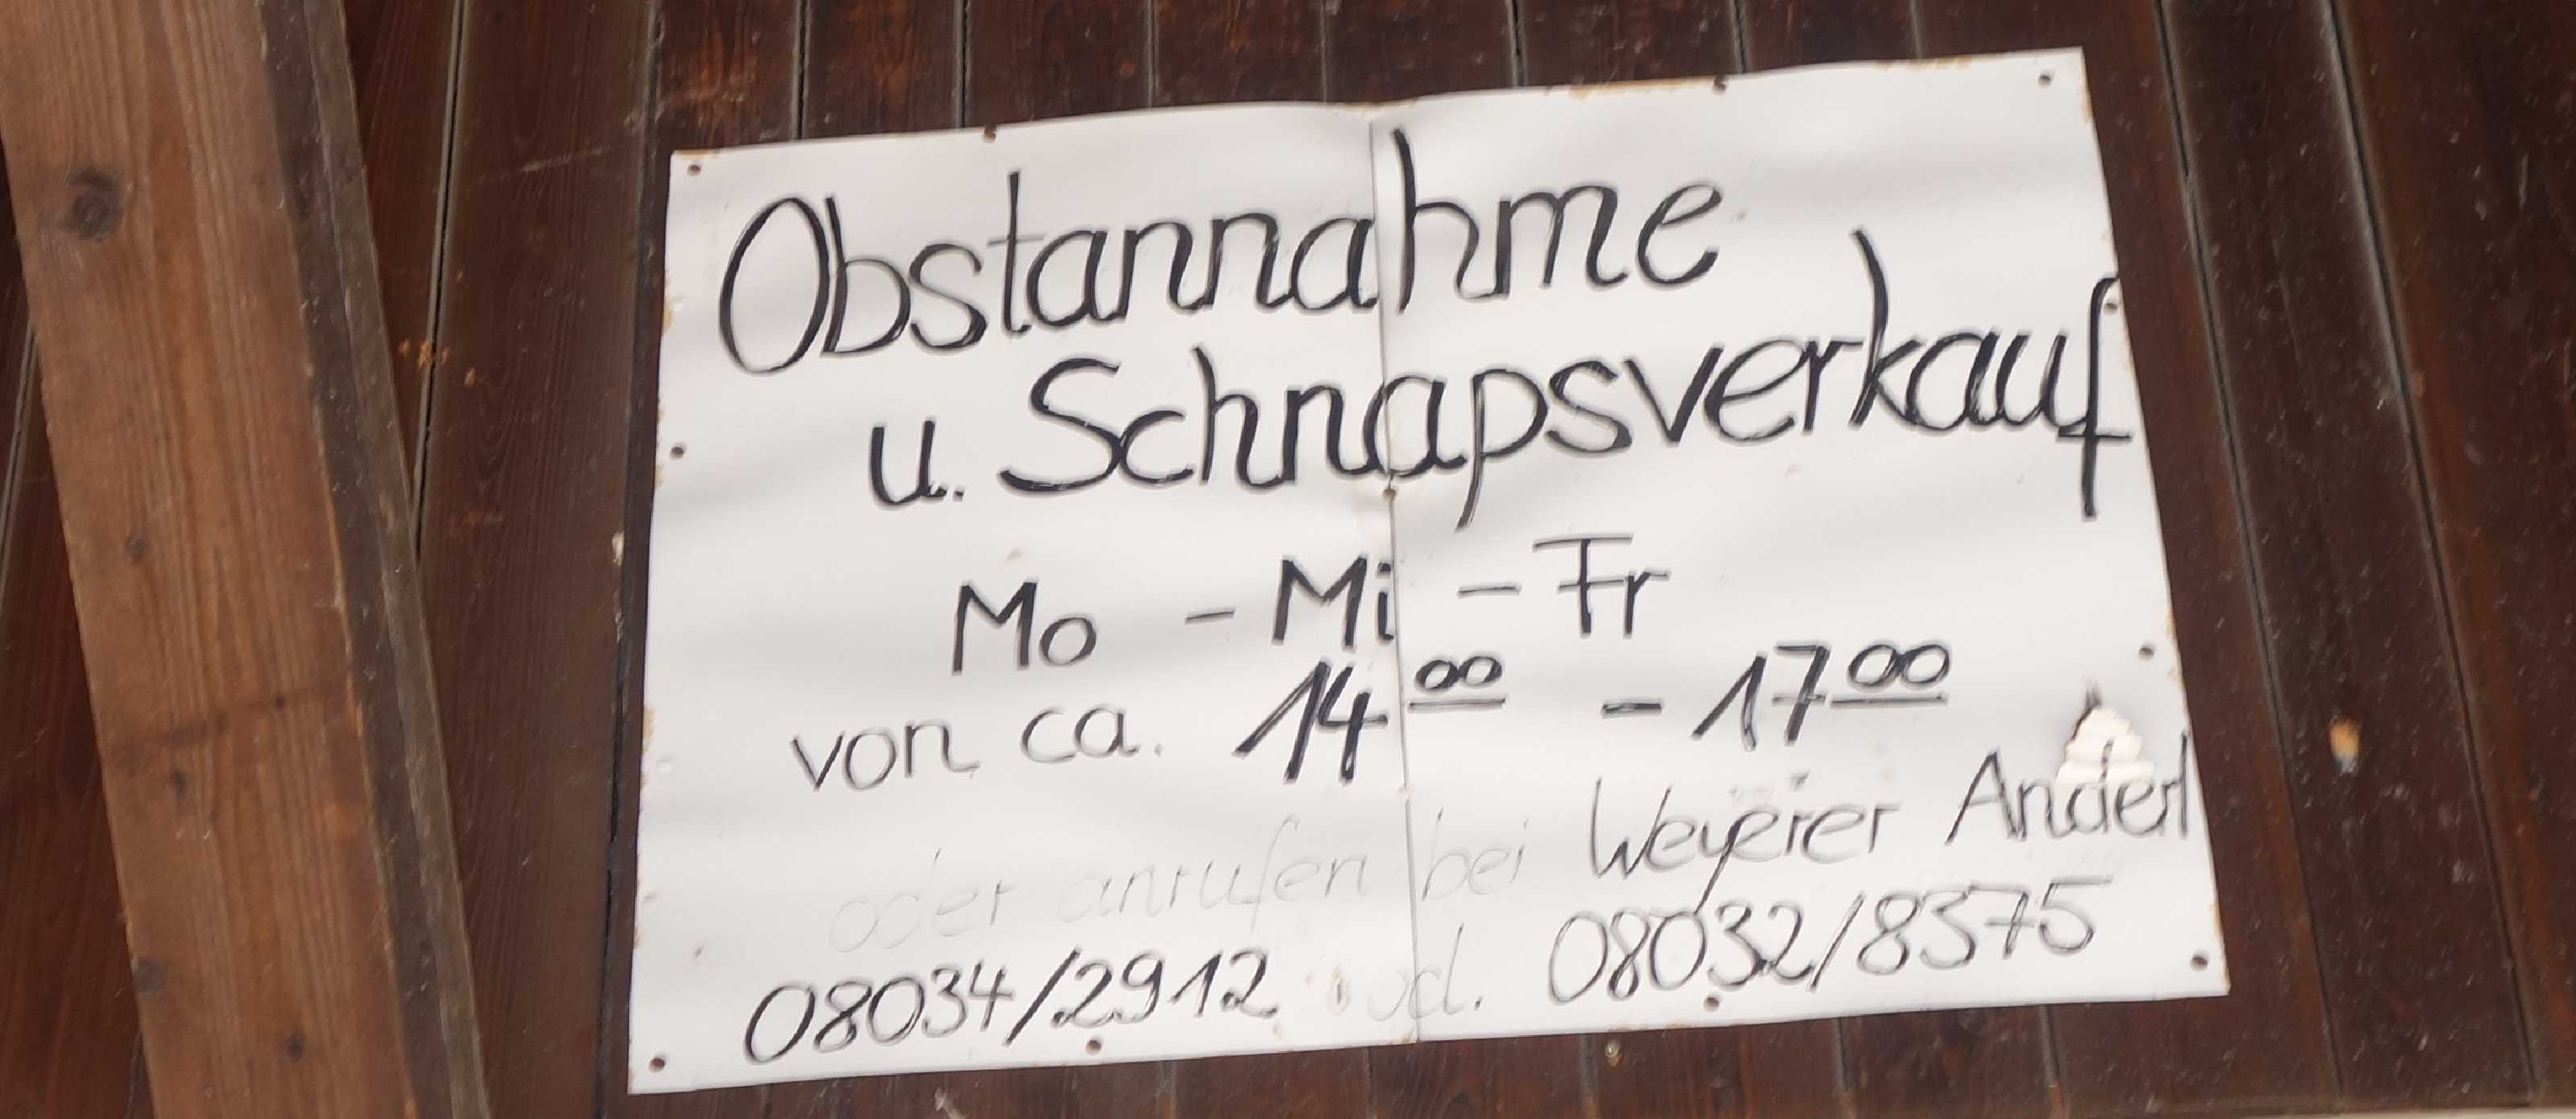 Obstannahme
u. Schnapsverkauf
Mo - Mi - Fr
von ca. 14 00 - 17 00
oder anrufen bei Weyerer Anderl
08034/2912 od. 08032/8375